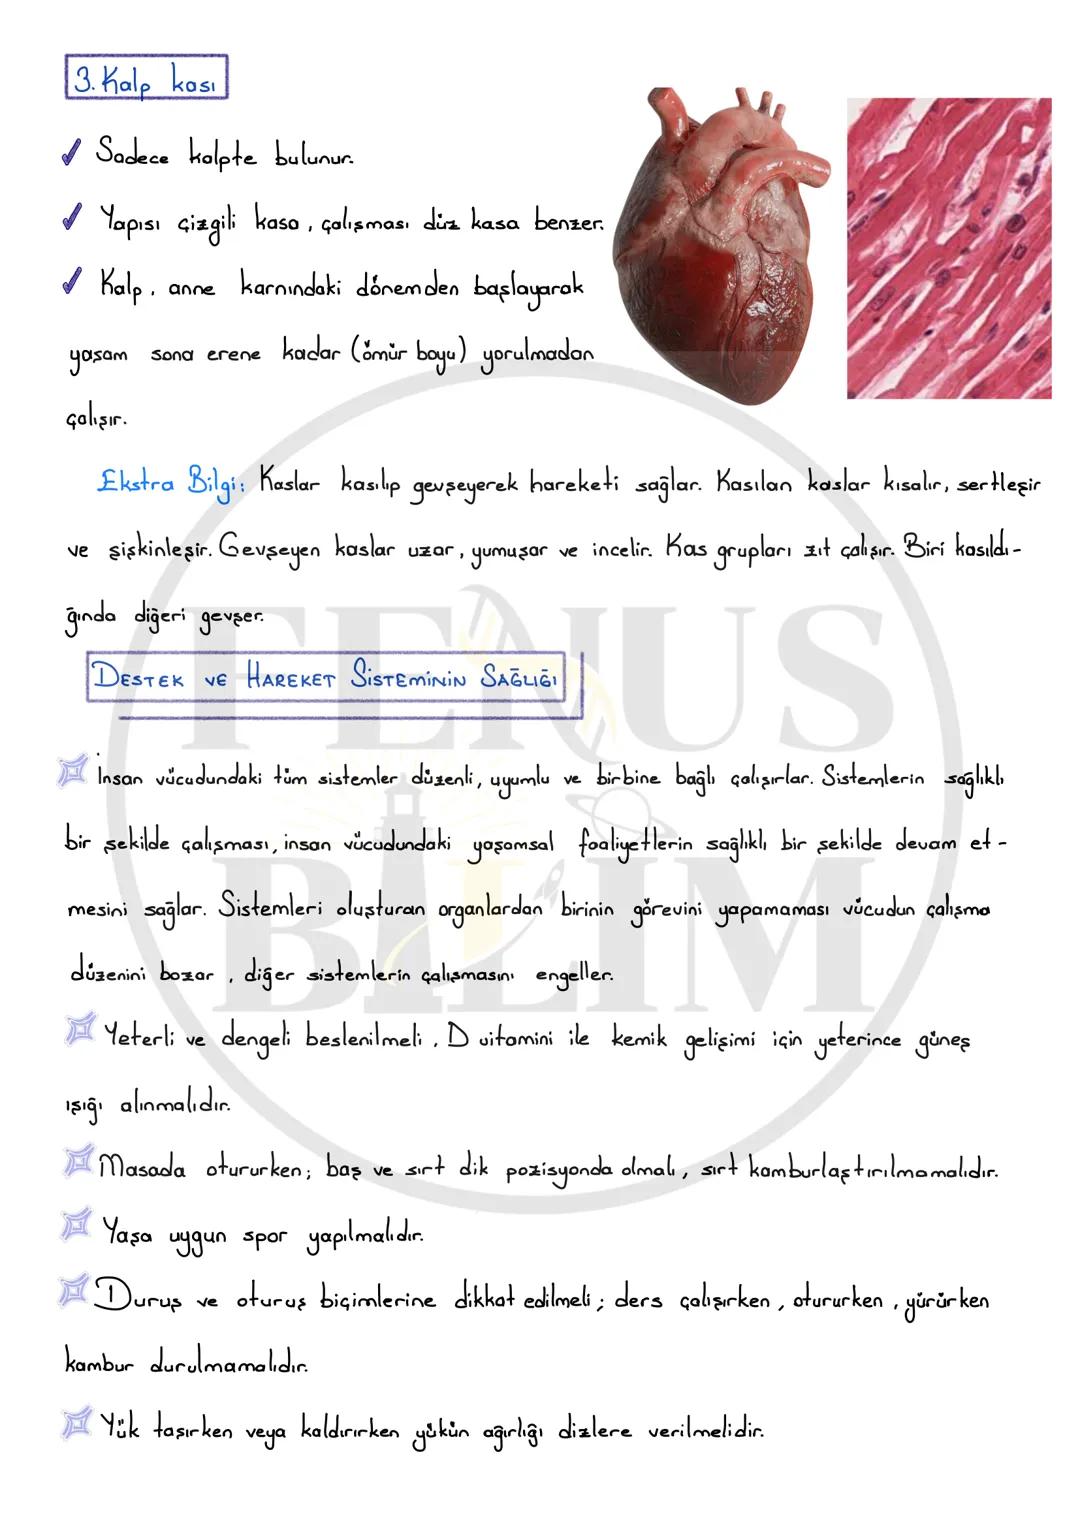 3. Kalp kası
Sadece kalpte bulunur.
Yapısı çizgili kasa, çalışması düz kasa benzer.
Kalp, anne karnındaki dönemden başlayarak
yaşam sona erene kadar (ömür boyu) yorulmadan
çalışır.
Ekstra Bilgi: Kaslar kasılıp gevşeyerek hareketi sağlar. Kasılan kaslar kısalır, sertleşir
ve şişkinleşir. Gevşeyen kaslar uzar, yumuşar ve incelir. Kas grupları zıt çalışır. Biri kasıldı-
ğında diğeri gevşer.
DESTEK VE HAREKET SİSTEMİNİN SAĞLIĞI
İnsan vücudundaki tüm sistemler düzenli, uyumlu ve birbine bağlı çalışırlar. Sistemlerin sağlıklı
bir şekilde çalışması, insan vücudundaki yaşamsal faaliyetlerin sağlıklı bir şekilde devam et-
mesini sağlar. Sistemleri oluşturan organlardan birinin görevini yapamaması vücudun çalışma
düzenini bozar, diğer sistemlerin çalışmasını engeller.
Yeterli ve dengeli beslenilmeli, D vitamini ile kemik gelişimi için yeterince güneş
ışığı alınmalıdır.
Masada otururken; baş ve sırt dik pozisyonda olmalı, sırt kamburlaştırılmamalıdır.
Yaşa uygun spor yapılmalıdır.
Duruş ve oturuş biçimlerine dikkat edilmeli; ders çalışırken, otururken, yürürken
kambur durulmamalıdır.
Yük taşırken veya kaldırırken yükün ağırlığı dizlere verilmelidir.
FENUS
BİLİM